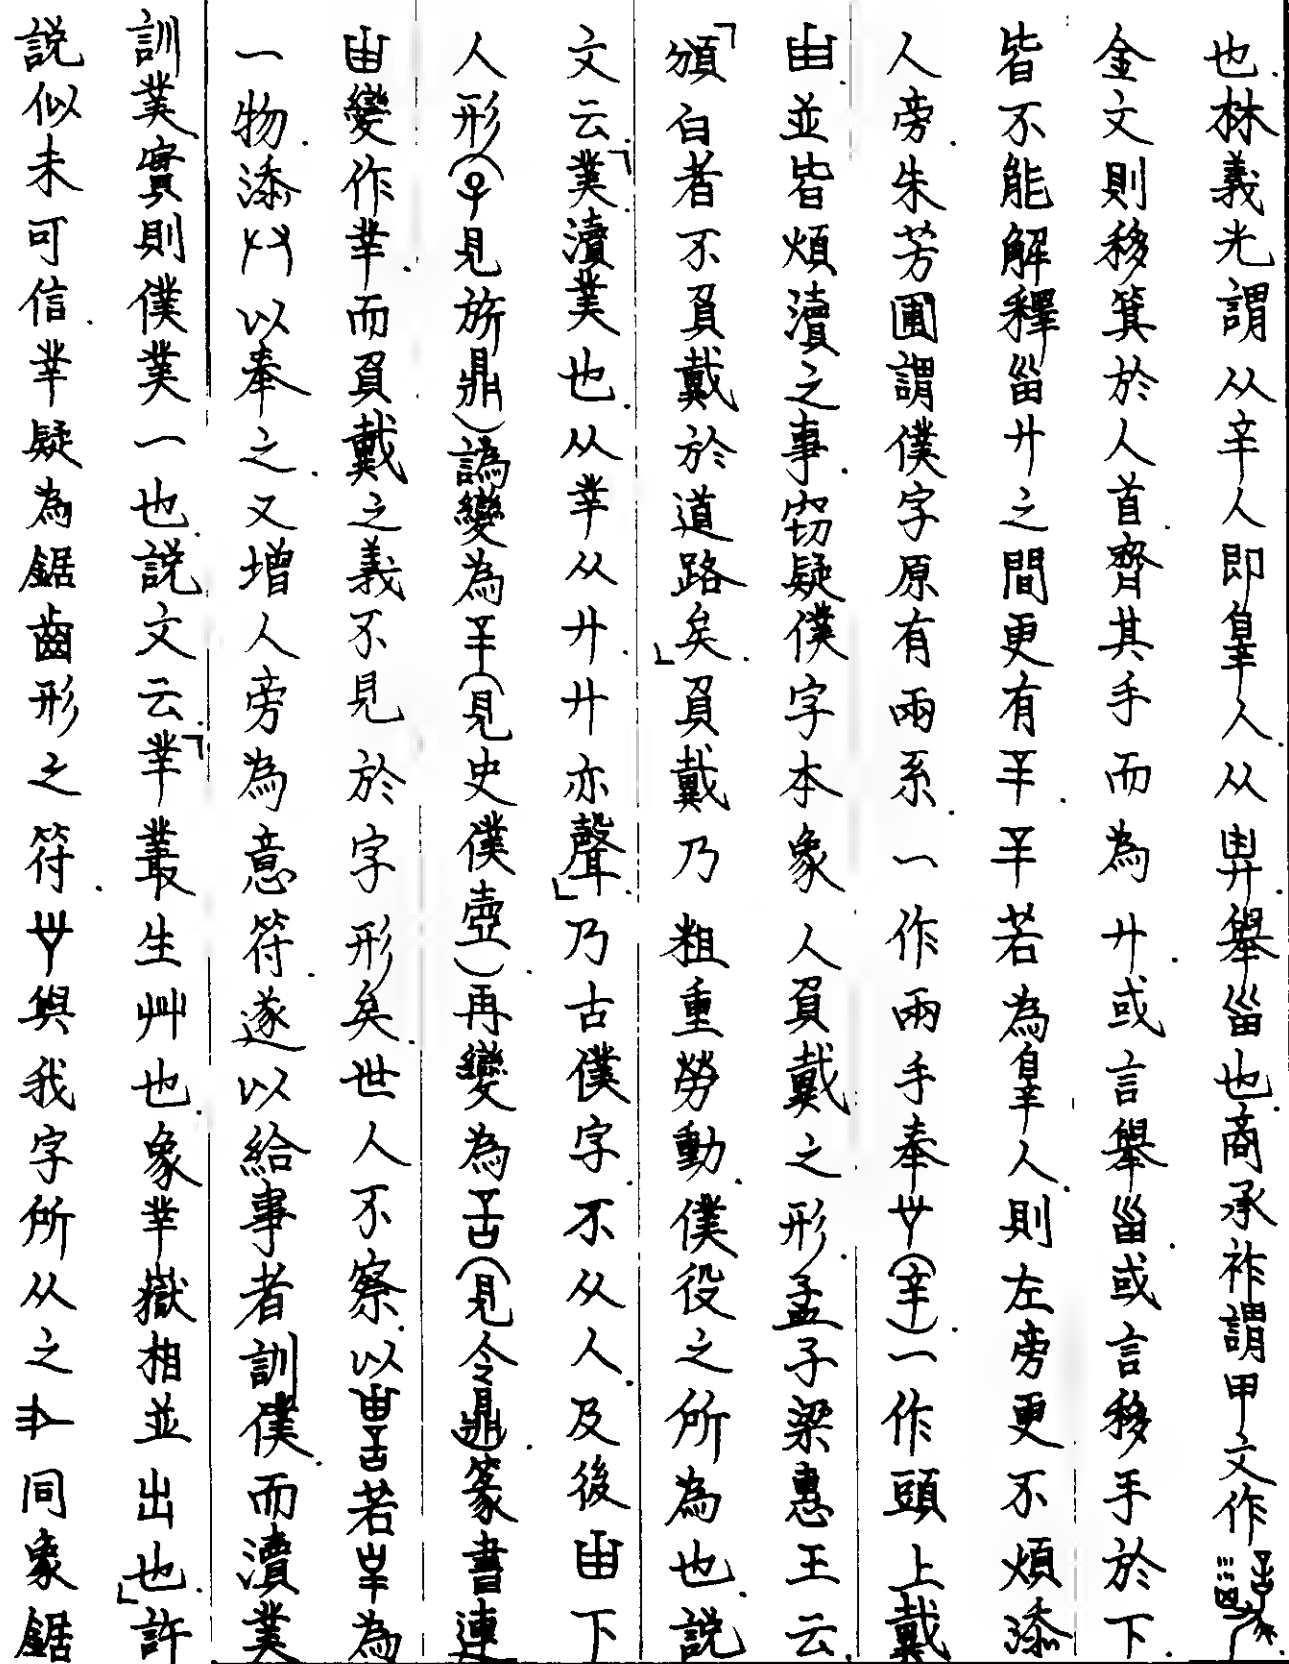 也.林義光謂从辛人即辠人.从𢌿.舉甾也.商承祚謂甲文作
金文則移箕於人首.齊其手而為廾.或言舉甾.或言移手於下
皆不能解釋甾廾之間更有䇂.䇂若為辠人.則左旁更不煩添
人旁.朱芳圃謂僕字原有兩系.一作兩手奉(䇂).一作頭上戴
由.並皆煩瀆之事.窃疑僕字本象人負戴之形.孟子梁惠王云.
「頒白者不負戴於道路矣」.負戴乃粗重勞動.僕役之所為也.說
文云.「菐瀆菐也.从丵从廾.廾亦聲」.乃古僕字.不从人.及後由下
人形(見旂鼎)譌變為䇂(見史僕壺).再變為(見令鼎).篆書連
由變作丵.而負戴之義不見於字形矣.世人不察.以若為
一物.添𠬞以奉之.又增人旁為意符.遂以給事者訓僕.而瀆菐
訓菐.實則僕菐一也.說文云.「丵叢生艸也.象丵嶽相並出也.」許
說似未可信.丵疑為鋸齒形之符.與我字所从之同象鋸